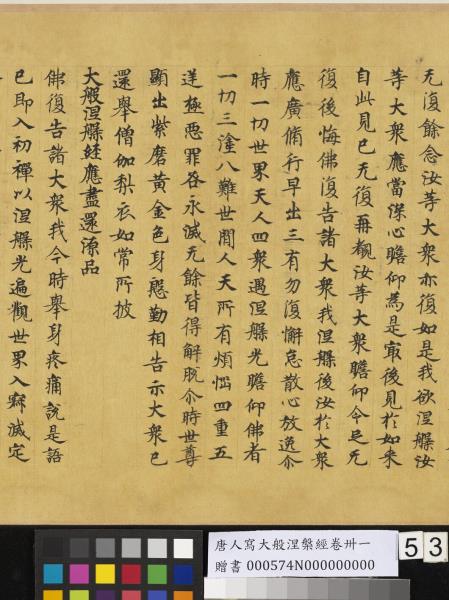 无復餘念汝等大衆亦復如是我欲涅槃汝
等大衆應當深心瞻仰為是最後見於如來
自此見已无復再覩汝等大衆瞻仰令足无
復後悔佛復告諸大衆我涅槃後汝於大衆
應廣脩行早出三有勿復懈怠散心放逸尒
時一切世界天人四衆遇涅槃光瞻仰佛者
一切三塗八難世間人天所有煩惱四重五
逆極惡罪咎永滅无餘皆得解脫尒時世尊
顯出紫磨黃金色身慇勤相告示大衆已
還舉僧伽梨衣如常所披
大般涅槃經應盡還源品
佛復告諸大衆我今時舉身疼痛說是語
已即入初禪以涅槃光遍觀世界入寂滅定
唐人寫大般涅槃經卷卅一
贈書 000574N000000000
53